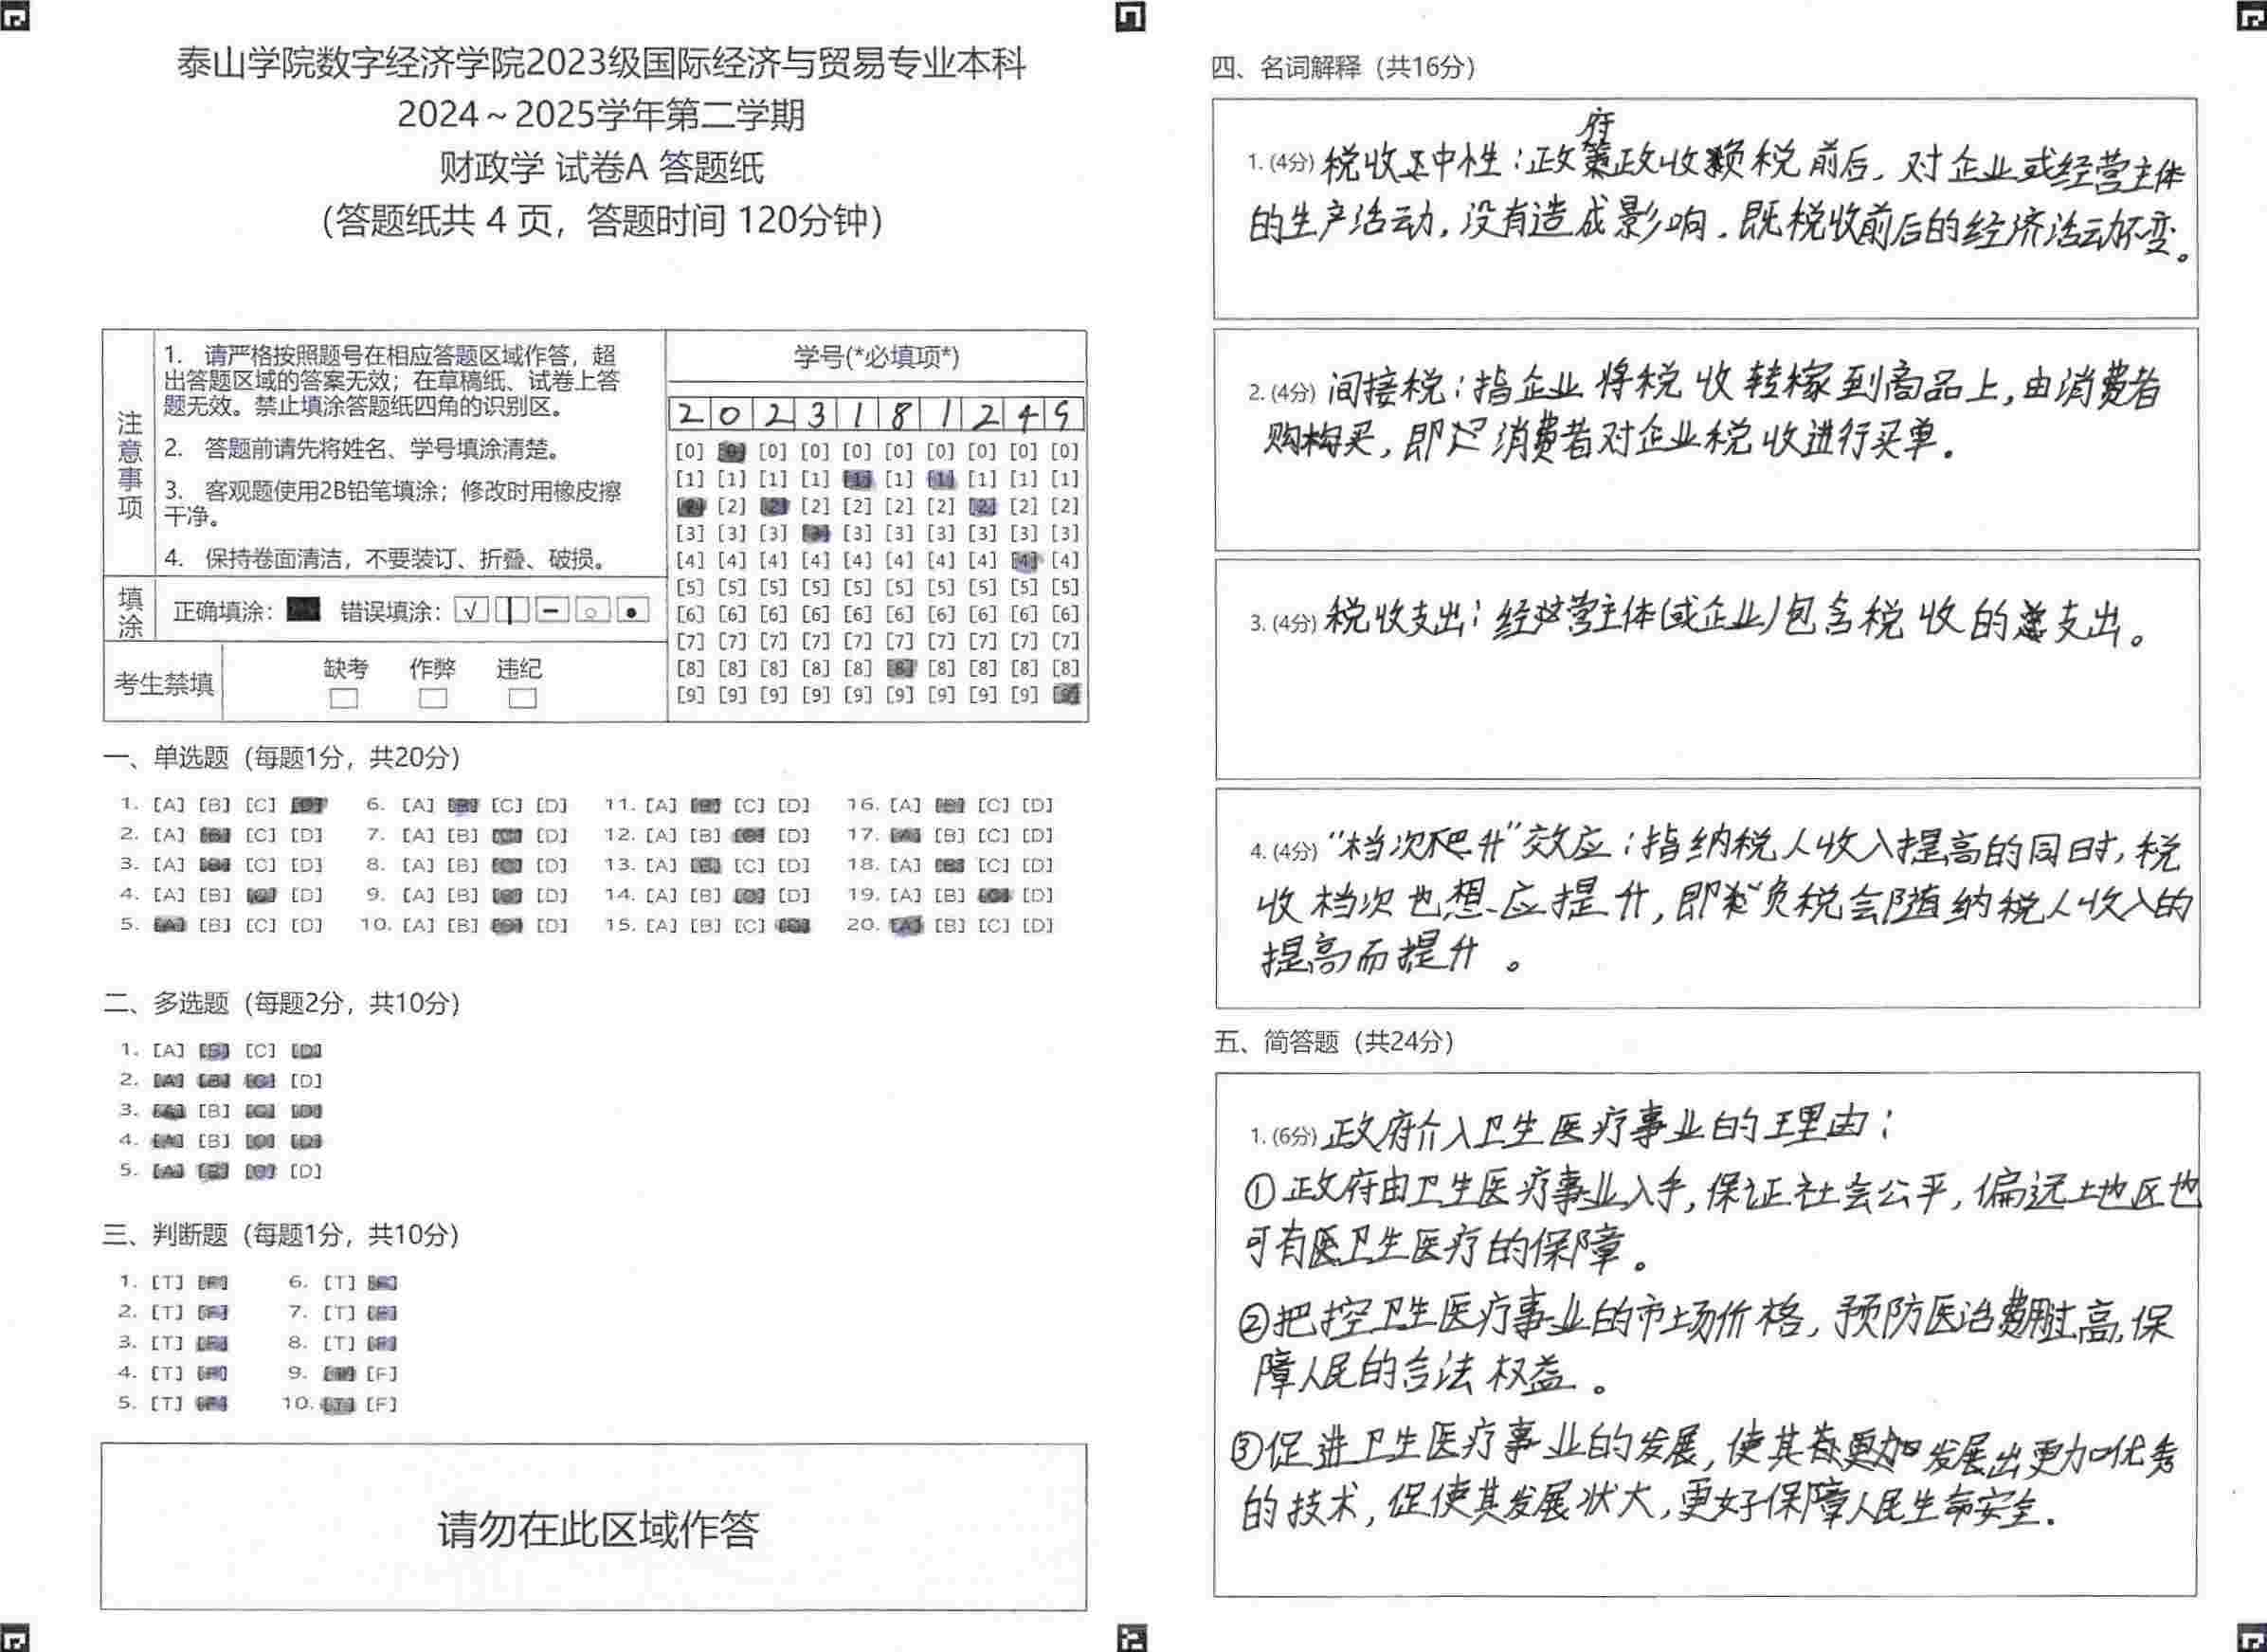 泰山学院数字经济学院2023级国际经济与贸易专业本科
2024～2025学年第二学期
财政学 试卷A 答题纸
（答题纸共 4 页，答题时间 120分钟）
注意事项
1. 请严格按照题号在相应答题区域作答，超
出答题区域的答案无效；在草稿纸、试卷上答
题无效。禁止填涂答题纸四角的识别区。
2. 答题前请先将姓名、学号填涂清楚。
3. 客观题使用2B铅笔填涂；修改时用橡皮擦
干净。
4. 保持卷面清洁，不要装订、折叠、破损。
填涂
正确填涂： 错误填涂：
考生禁填
缺考 作弊 违纪
学号(*必填项*)
2 0 2 3 1 8 1 2 4 9
[0] [0] [0] [0] [0] [0] [0] [0] [0] [0]
[1] [1] [1] [1] [1] [1] [1] [1] [1] [1]
[2] [2] [2] [2] [2] [2] [2] [2] [2] [2]
[3] [3] [3] [3] [3] [3] [3] [3] [3] [3]
[4] [4] [4] [4] [4] [4] [4] [4] [4] [4]
[5] [5] [5] [5] [5] [5] [5] [5] [5] [5]
[6] [6] [6] [6] [6] [6] [6] [6] [6] [6]
[7] [7] [7] [7] [7] [7] [7] [7] [7] [7]
[8] [8] [8] [8] [8] [8] [8] [8] [8] [8]
[9] [9] [9] [9] [9] [9] [9] [9] [9] [9]
一、单选题（每题1分，共20分）
1. [A] [B] [C] [D] 6. [A] [B] [C] [D] 11. [A] [B] [C] [D] 16. [A] [B] [C] [D]
2. [A] [B] [C] [D] 7. [A] [B] [C] [D] 12. [A] [B] [C] [D] 17. [A] [B] [C] [D]
3. [A] [B] [C] [D] 8. [A] [B] [C] [D] 13. [A] [B] [C] [D] 18. [A] [B] [C] [D]
4. [A] [B] [C] [D] 9. [A] [B] [C] [D] 14. [A] [B] [C] [D] 19. [A] [B] [C] [D]
5. [A] [B] [C] [D] 10. [A] [B] [C] [D] 15. [A] [B] [C] [D] 20. [A] [B] [C] [D]
二、多选题（每题2分，共10分）
1. [A] [B] [C] [D]
2. [A] [B] [C] [D]
3. [A] [B] [C] [D]
4. [A] [B] [C] [D]
5. [A] [B] [C] [D]
三、判断题（每题1分，共10分）
1. [T] [F] 6. [T] [F]
2. [T] [F] 7. [T] [F]
3. [T] [F] 8. [T] [F]
4. [T] [F] 9. [T] [F]
5. [T] [F] 10. [T] [F]
请勿在此区域作答
四、名词解释（共16分）
1. (4分) 税收中性：政府政收税前后，对企业或经营主体
的生产活动，没有造成影响．既税收前后的经济活动不变。
2. (4分) 间接税：指企业将税收转稼到商品上，由消费者
购买，即 消费者对企业税收进行买单．
3. (4分) 税收支出：经营主体(或企业)包含税收的总支出。
4. (4分) “档次爬升”效应：指纳税人收入提高的同时，税
收档次也想应提升，即 负税会随纳税人收入的
提高而提升 。
五、简答题（共24分）
1. (6分) 政府介入卫生医疗事业的理由：
①政府由卫生医疗事业入手，保证社会公平，偏远地区也
可有卫生医疗的保障。
②把控卫生医疗事业的市场价格，预防医治费用过高，保
障人民的合法权益。
③促进卫生医疗事业的发展，使其发展出更加优秀
的技术，促使其发展状大，更好保障人民生命安全．